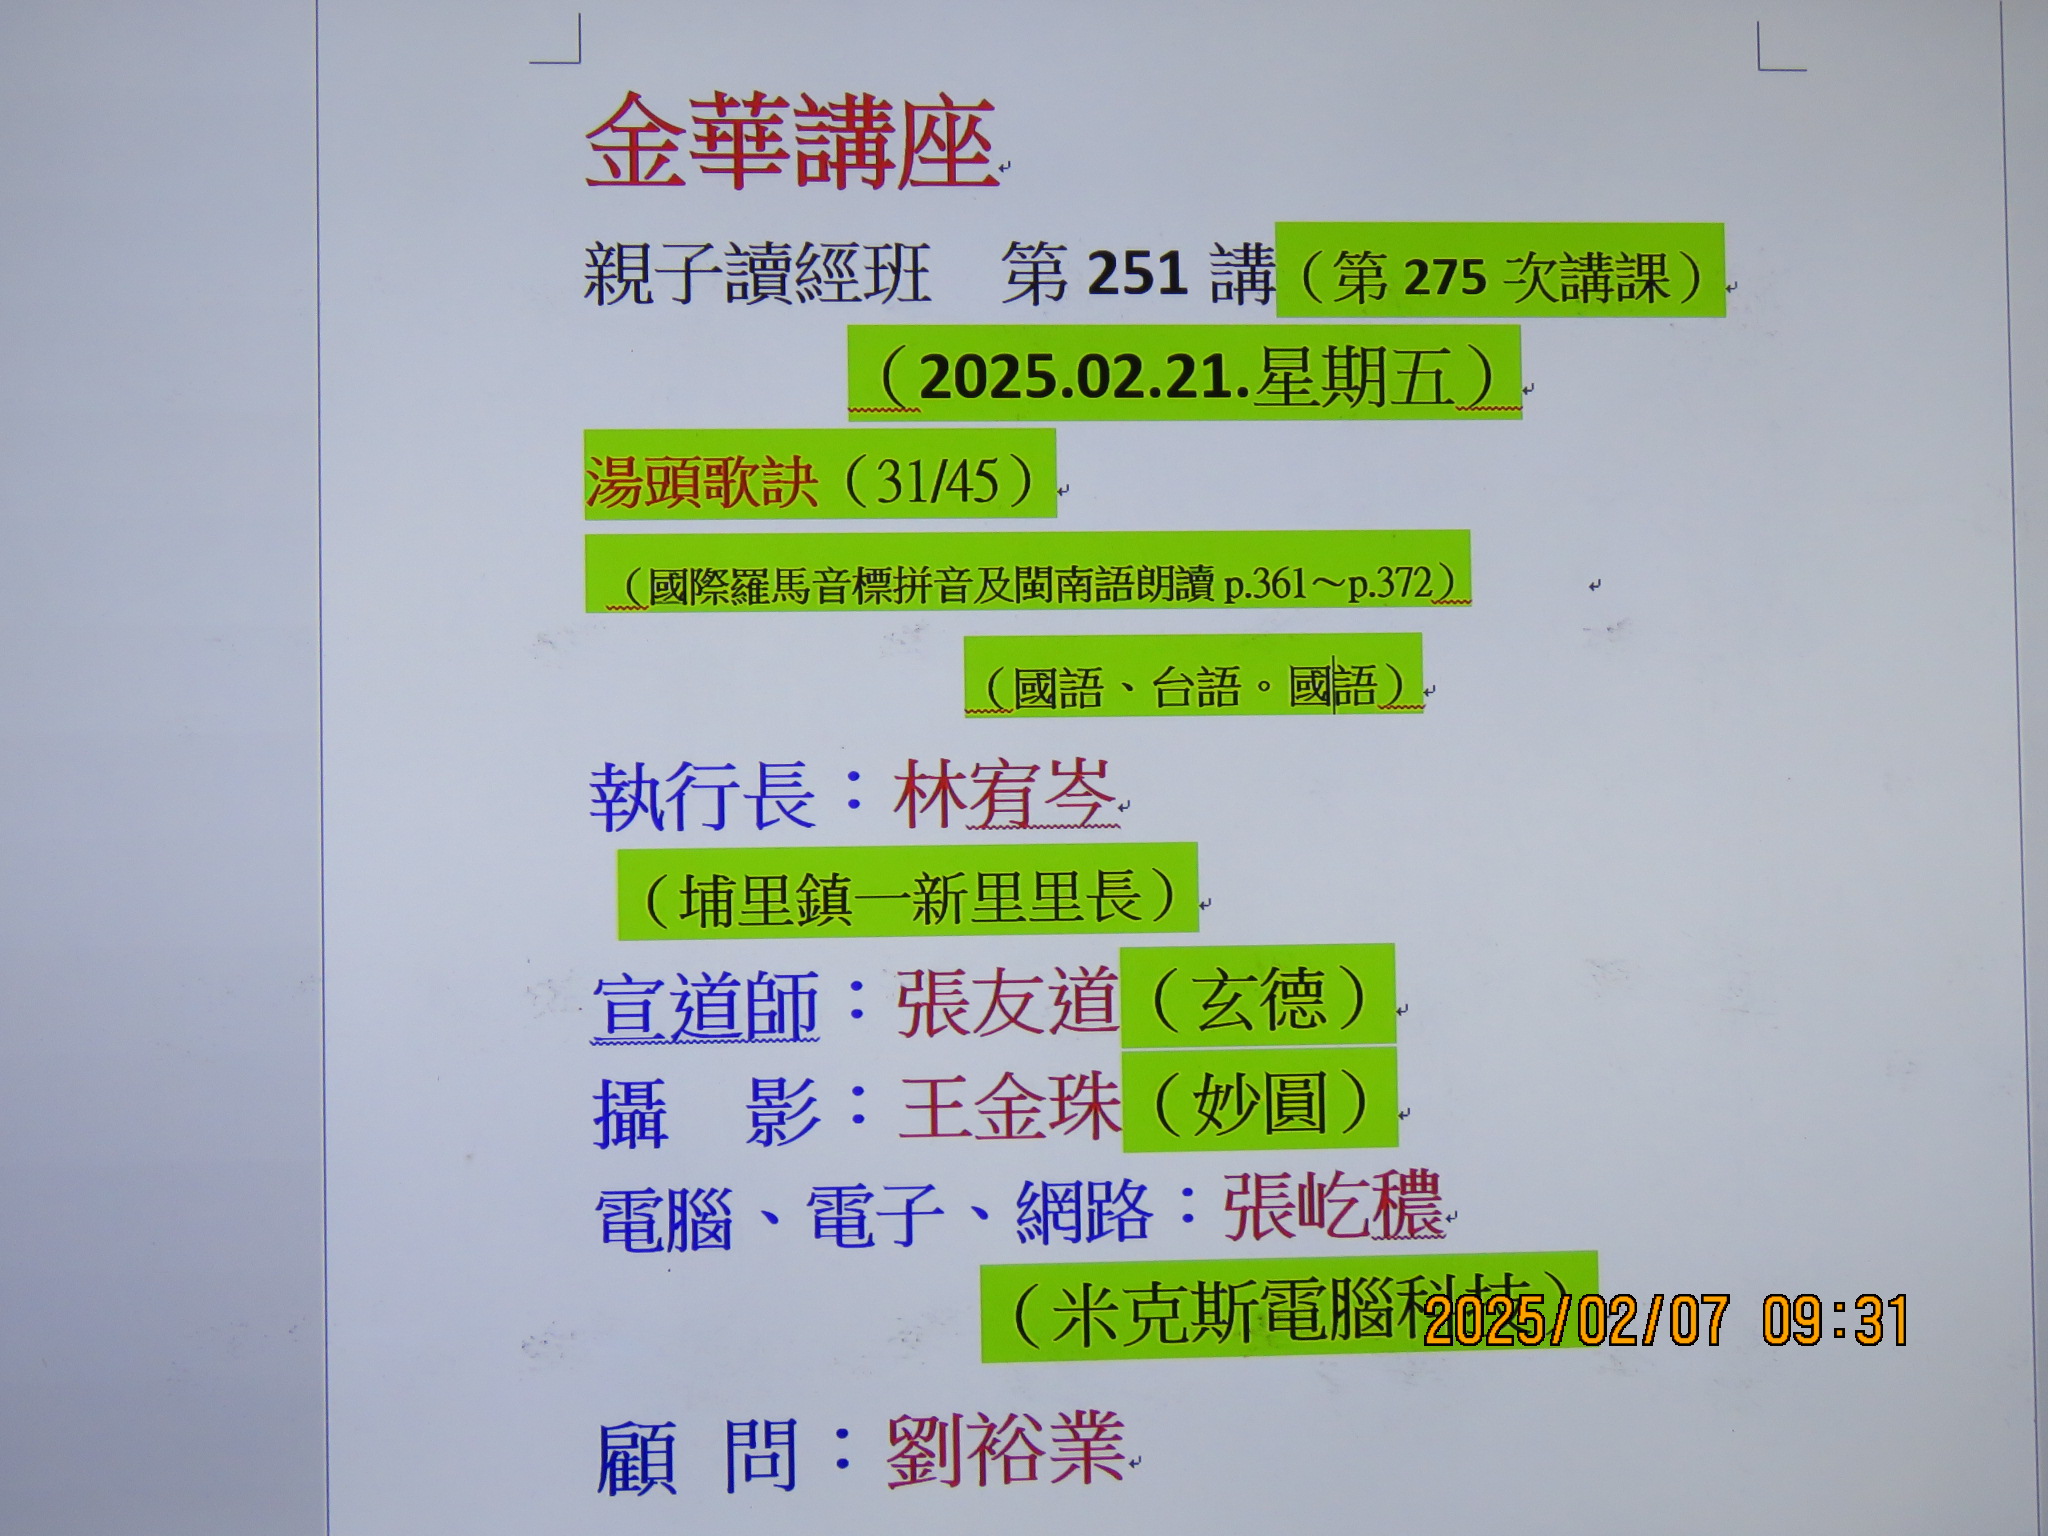 金華講座
親子讀經班　第 251 講（第 275 次講課）
（2025.02.21.星期五）
湯頭歌訣（31/45）
（國際羅馬音標拼音及閩南語朗讀 p.361～p.372）
（國語、台語。國語）
執行長：林宥岑
（埔里鎮一新里里長）
宣道師：張友道（玄德）
攝　影：王金珠（妙圓）
電腦、電子、網路：張屹穠
（米克斯電腦科技）
2025/02/07 09:31
顧 問：劉裕業